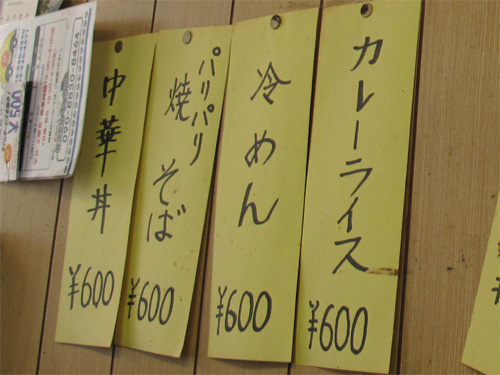 カレーライス
¥600
冷めん
¥600
パリパリ
焼そば
¥600
中華丼
¥600
¥500